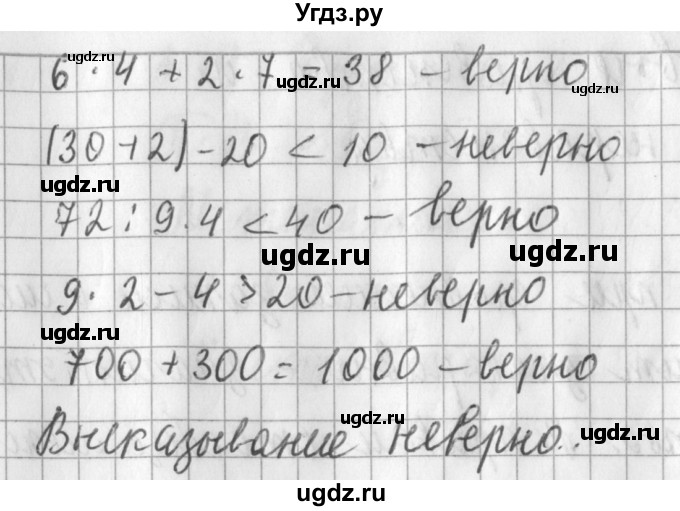 Угдз.ру
6 · 4 + 2 · 7 = 38 – верно
(30 + 2) - 20 < 10 – неверно
72 : 9 · 4 < 40 – верно
9 · 2 - 4 > 20 – неверно
700 + 300 = 1000 – верно
Высказывание неверно.
ugdz.ru
ugdz.ru
ugdz.ru
ugdz.ru
ugdz.ru
ugdz.ru
ugdz.ru
ugdz.ru
ugdz.ru
ugdz.ru